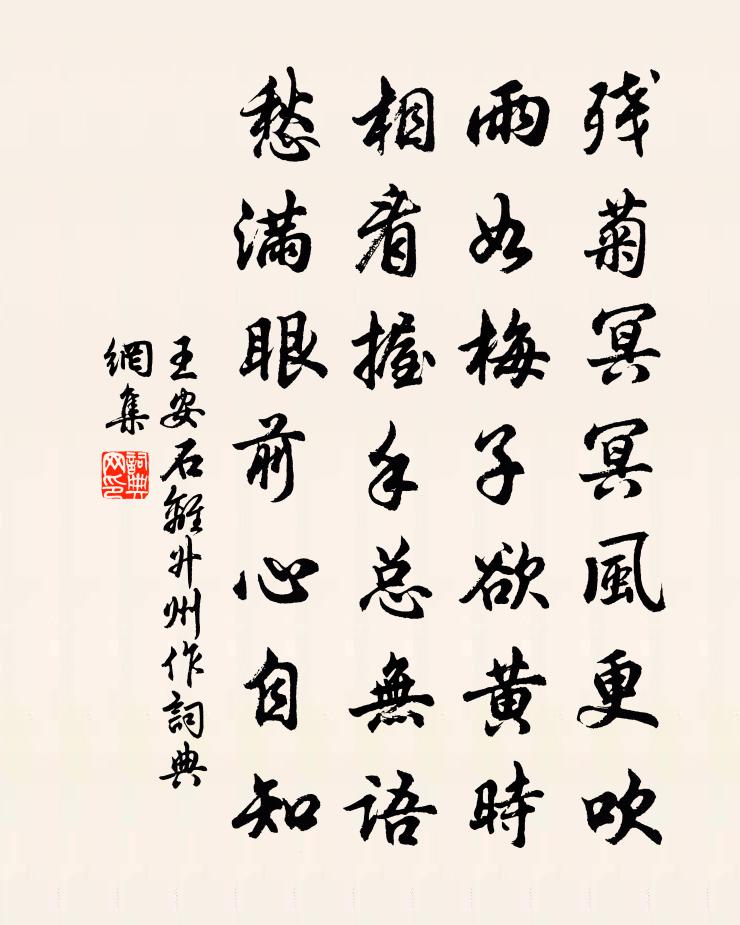 残菊冥冥風更吹
雨如梅子欲黄時
相看握手总無語
愁满眼前心自知
王安石離升州作詞典
網集
詞典
网印